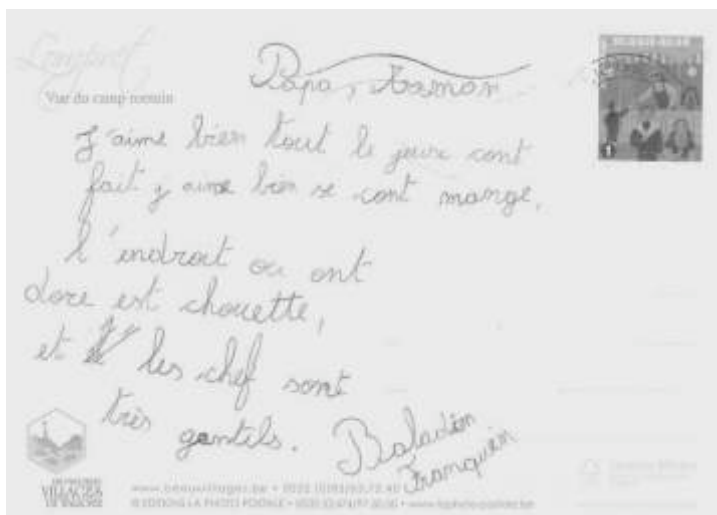 Lompret
Vue du camp romain
Papa, Maman
J'aime bien tout le jeux cont
fait j'aime bien se cont mange,
l'endroit ou ont
dore est chouette,
et les chef sont
très gentils.
Baladin
Franquin
www.beauxvillages.be